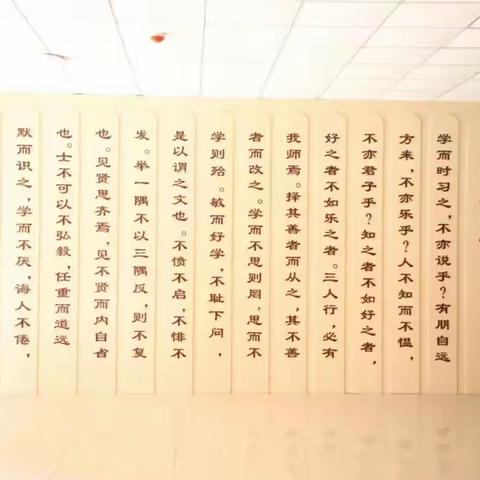 学而时习之，不亦说乎？有朋自远
方来，不亦乐乎？人不知而不愠，
不亦君子乎？知之者不如好之者，
好之者不如乐之者。三人行，必有
我师焉。择其善者而从之，其不善
者而改之。学而不思则罔，思而不
学则殆。敏而好学，不耻下问，
是以谓之文也。不愤不启，不悱不
发。举一隅不以三隅反，则不复
也。见贤思齐焉，见不贤而内自省
也。士不可以不弘毅，任重而道远
默而识之，学而不厌，诲人不倦，